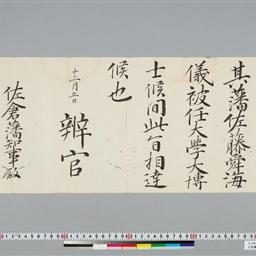 其藩佐藤舜海
儀被任大学大博
士候間此旨相達
候也
十一月五日
辨官
佐倉藩知事殿